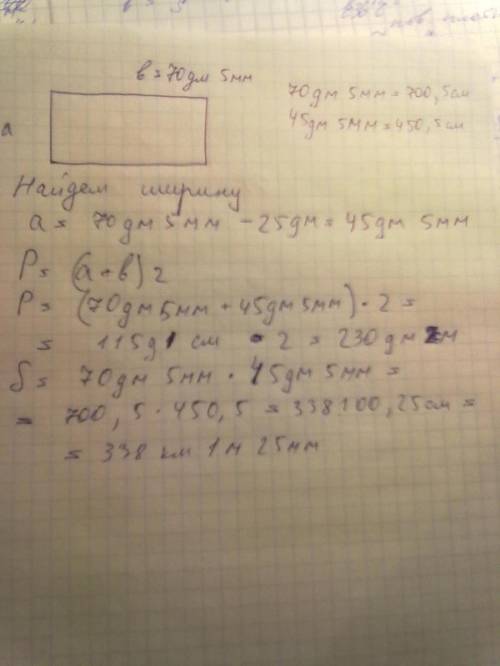 в = 70дм 5мм
70дм 5мм = 700,5см
45дм 5мм = 450,5см
а
Найдем ширину
а = 70дм 5мм - 25дм = 45дм 5мм
P = (а + в) 2
P = (70дм 5мм + 45дм 5мм) · 2 =
= 115д см · 2 = 230дм
S = 70дм 5мм · 45дм 5мм =
= 700,5 · 450,5 = 338100,25см =
= 338 км 1м 25мм